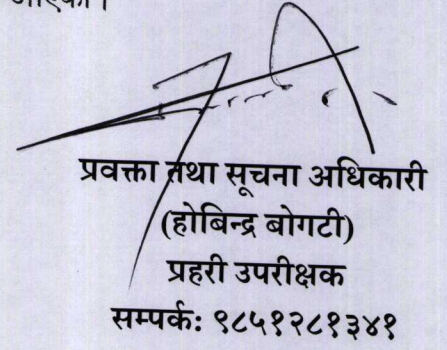 प्रवक्ता तथा सूचना अधिकारी
(होबिन्द्र बोगटी)
प्रहरी उपरीक्षक
सम्पर्क: ९८५१२८१३४१